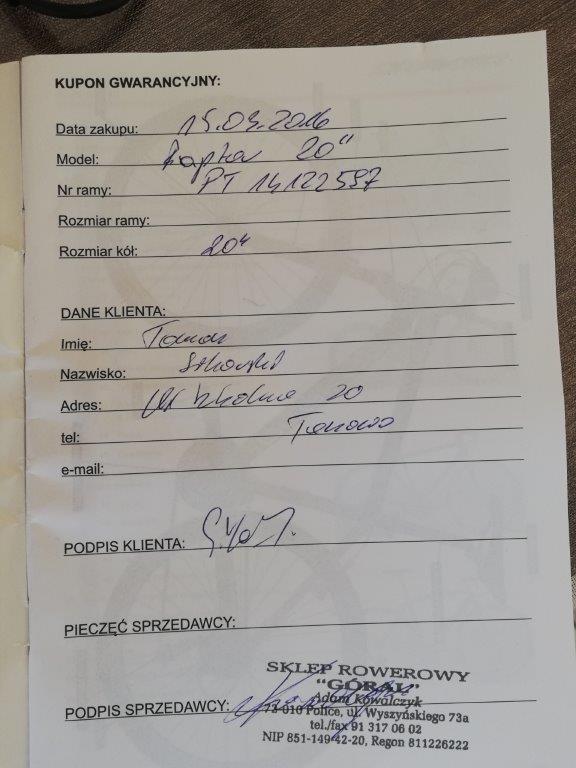 KUPON GWARANCYJNY:
Data zakupu: 15.03.2016
Model: 20"
Nr ramy: PT 14122597
Rozmiar ramy:
Rozmiar kół: 20"
DANE KLIENTA:
Imię: Tomasz
Nazwisko:
Adres: ul Szkolna 20
Tanowo
tel:
e-mail:
PODPIS KLIENTA:
PIECZĘĆ SPRZEDAWCY:
SKLEP ROWEROWY
"GÓRAL"
Adam Kowalczyk
PODPIS SPRZEDAWCY: 72-010 Police, ul. Wyszyńskiego 73a
tel./fax 91 317 06 02
NIP 851-149-42-20, Regon 811226222